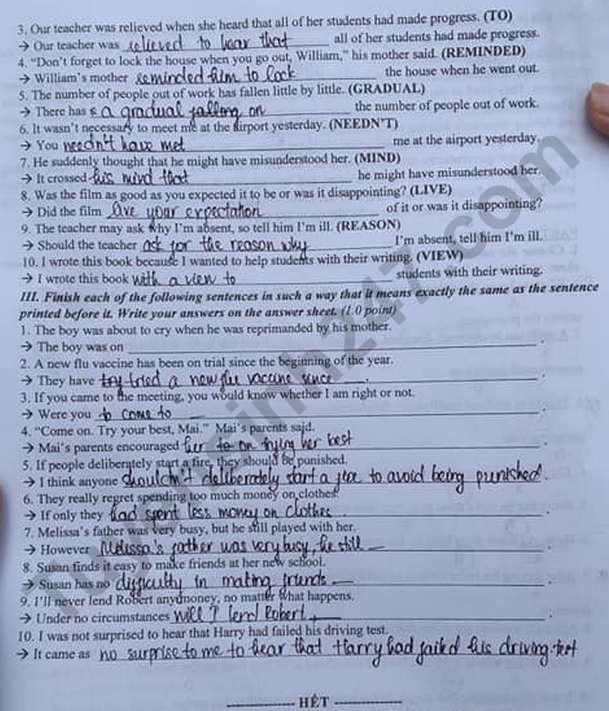 3. Our teacher was relieved when she heard that all of her students had made progress. (TO)
→ Our teacher was relieved to hear that all of her students had made progress.
4. “Don’t forget to lock the house when you go out, William,” his mother said. (REMINDED)
→ William’s mother reminded him to lock the house when he went out.
5. The number of people out of work has fallen little by little. (GRADUAL)
→ There has a gradual falling on the number of people out of work.
6. It wasn’t necessary to meet me at the airport yesterday. (NEEDN’T)
→ You needn't have met me at the airport yesterday.
7. He suddenly thought that he might have misunderstood her. (MIND)
→ It crossed his mind that he might have misunderstood her.
8. Was the film as good as you expected it to be or was it disappointing? (LIVE)
→ Did the film live your expectation of it or was it disappointing?
9. The teacher may ask why I’m absent, so tell him I’m ill. (REASON)
→ Should the teacher ask for the reason why I’m absent, tell him I’m ill.
10. I wrote this book because I wanted to help students with their writing. (VIEW)
→ I wrote this book with a view to students with their writing.
III. Finish each of the following sentences in such a way that it means exactly the same as the sentence
printed before it. Write your answers on the answer sheet. (1.0 point)
1. The boy was about to cry when he was reprimanded by his mother.
→ The boy was on .
2. A new flu vaccine has been on trial since the beginning of the year.
→ They have tried a new flu vaccine since .
3. If you came to the meeting, you would know whether I am right or not.
→ Were you to come to .
4. “Come on. Try your best, Mai.” Mai’s parents said.
→ Mai’s parents encouraged her to on trying her best .
5. If people deliberately start a fire, they should be punished.
→ I think anyone shouldn't deliberately start a fire to avoid being punished.
6. They really regret spending too much money on clothes.
→ If only they had spent less money on clothes .
7. Melissa’s father was very busy, but he still played with her.
→ However Melissa's father was very busy, he still .
8. Susan finds it easy to make friends at her new school.
→ Susan has no difficulty in making friends .
9. I’ll never lend Robert any money, no matter what happens.
→ Under no circumstances will I lend Robert .
10. I was not surprised to hear that Harry had failed his driving test.
→ It came as no surprise to me to hear that Harry had failed his driving test
HẾT
Tuyensinh247.com